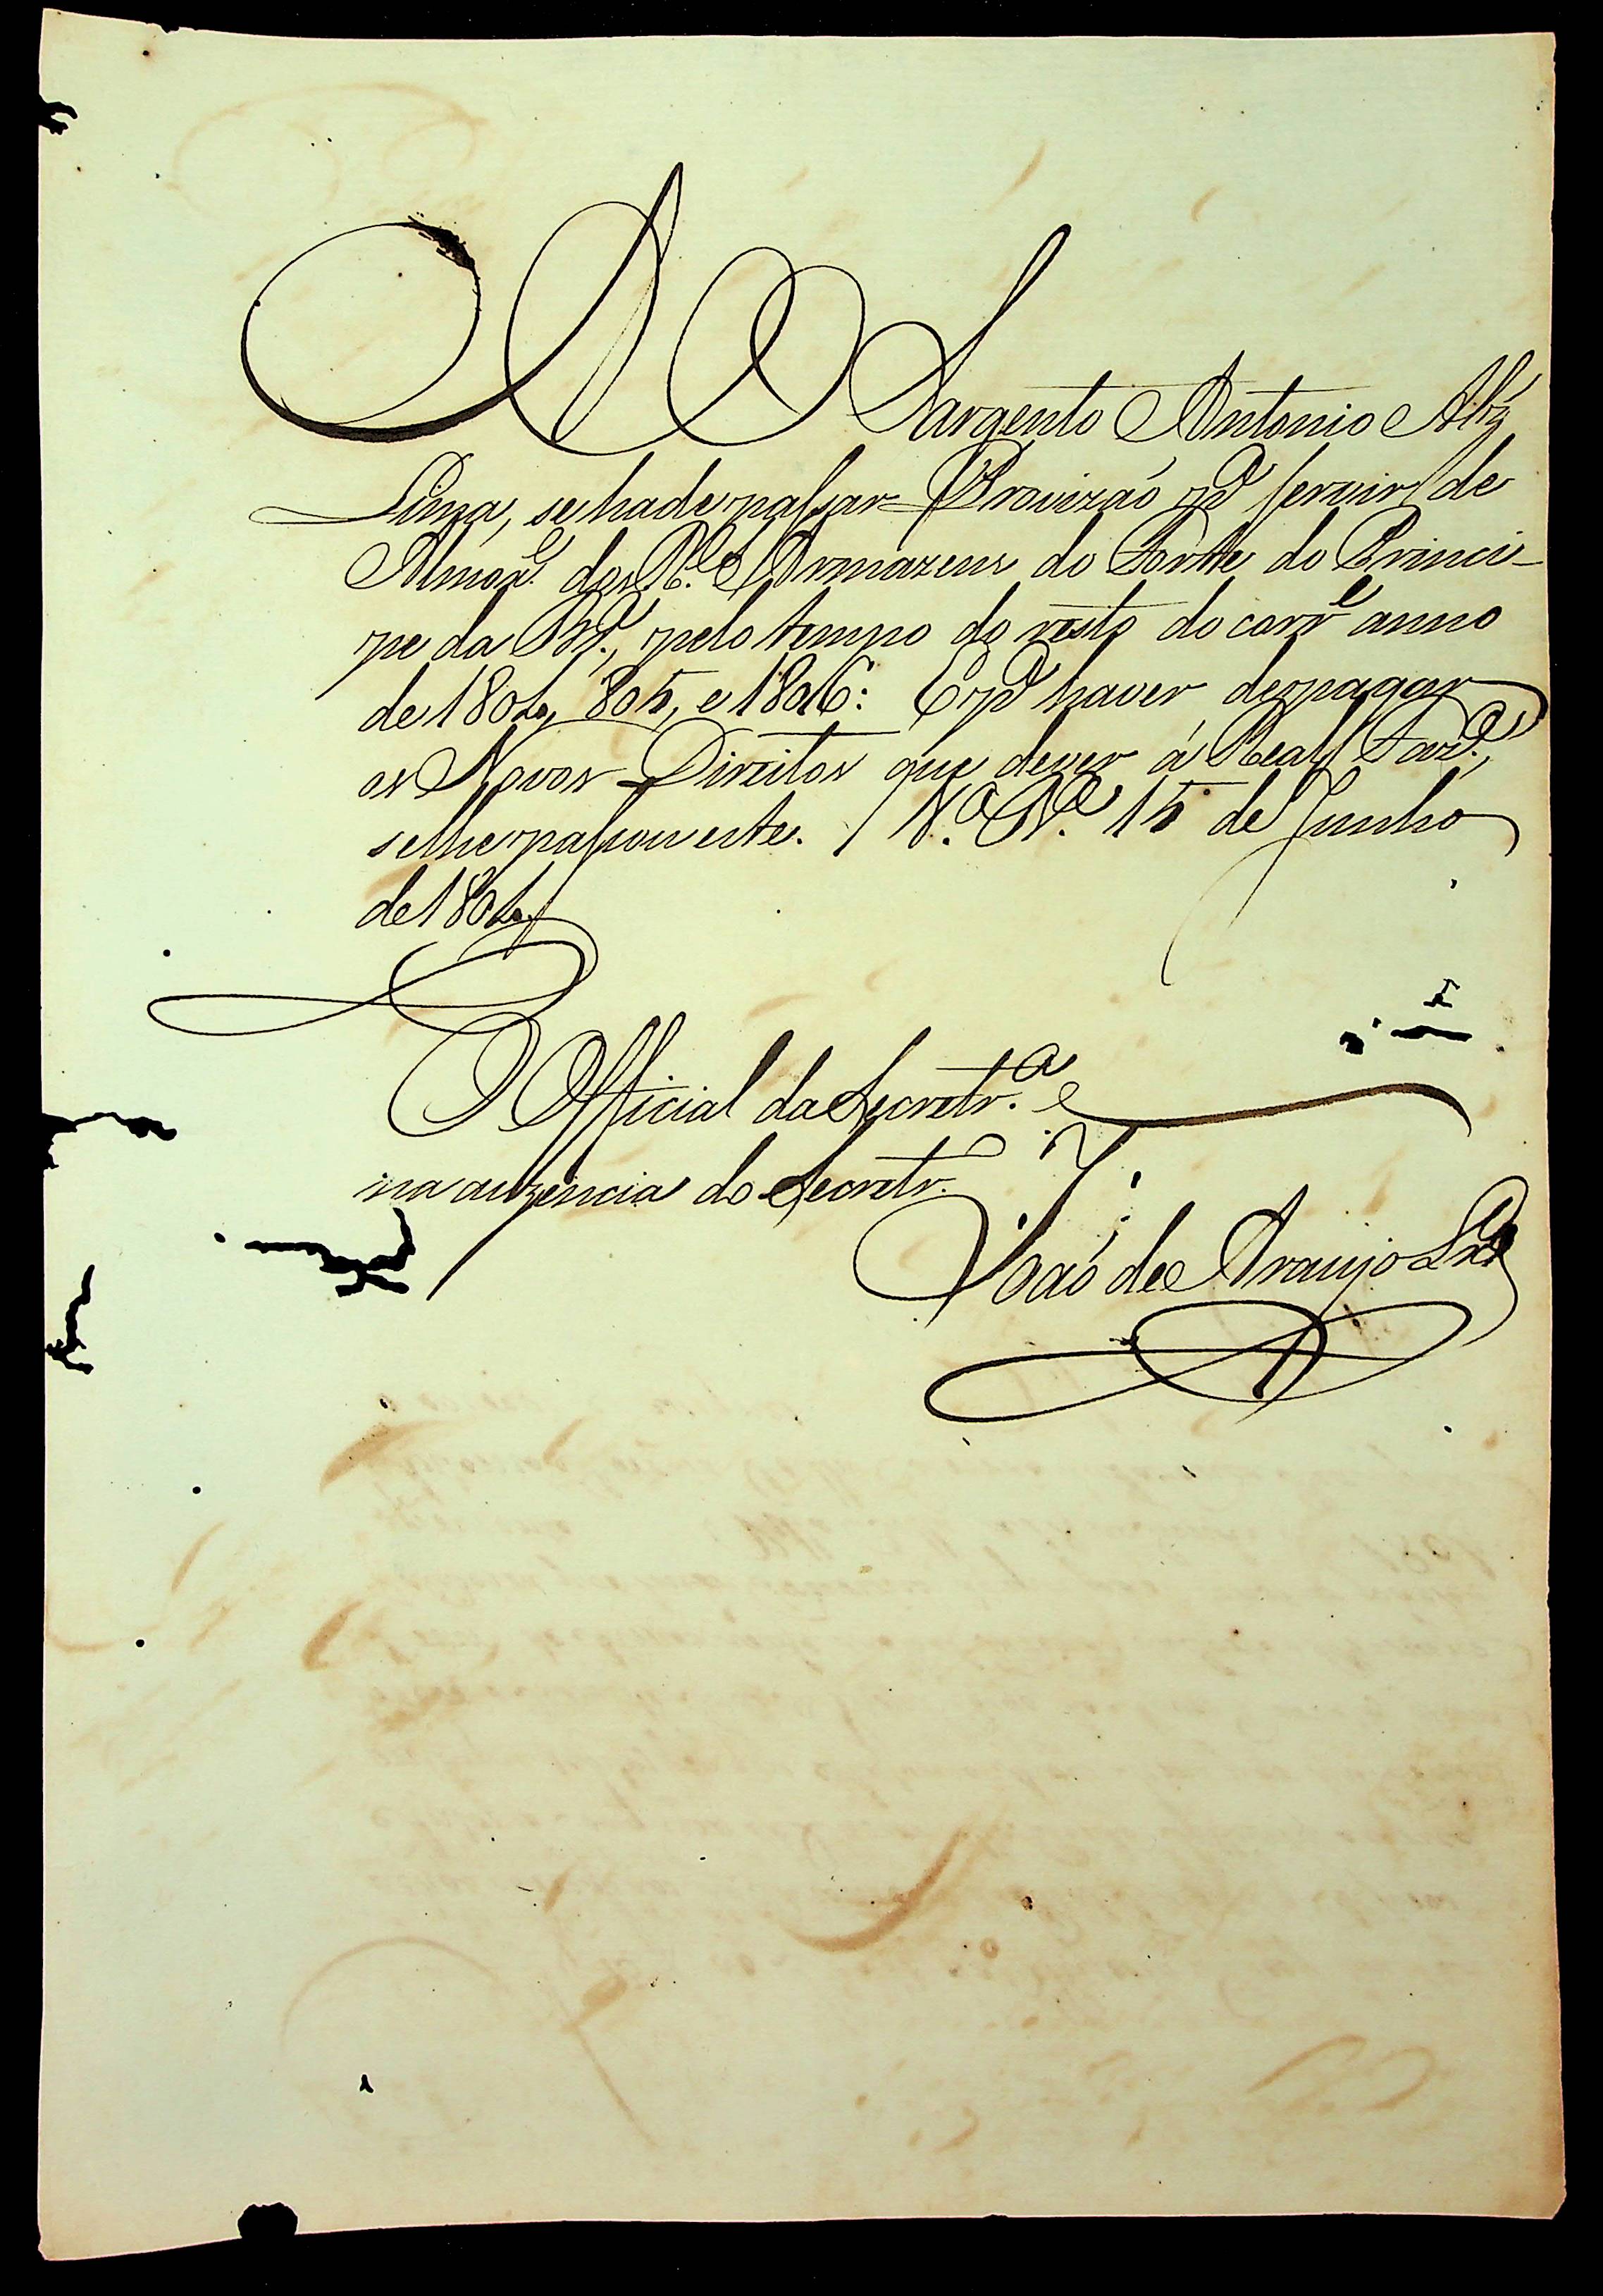 Ao Sargento Antonio Alz̃
Lima, se hade passar Provizaõ pª servir de
Almoxe. dos R.es Armazens do Forte do Princi-
pe da Brª., pelo tempo do resto do corre anno
de 1804, 805, e 1806: E pª haver de pagar
os Novos Direitos que dever á Real Fazda.,
se lhe passou este. Vª. Bª. 15 de Junho
de 1804
O Official da Secretr.a
na auzencia do Secretr.o
Joaõ de Araujo